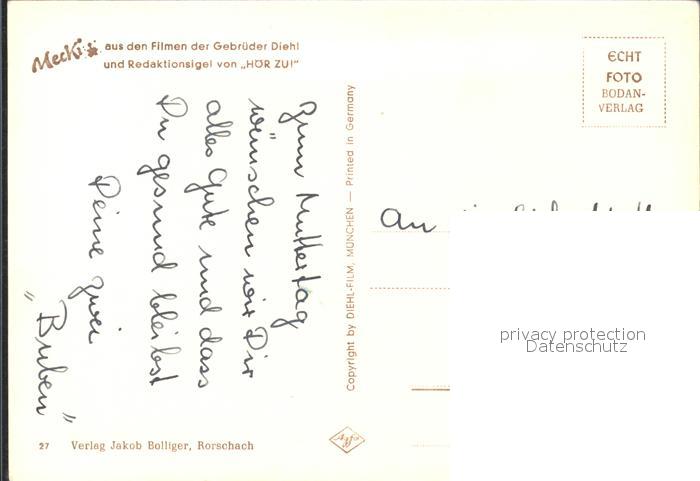 Mecki's aus den Filmen der Gebrüder Diehl
und Redaktionsigel von „HÖR ZU!"
ECHT
FOTO
BODAN-
VERLAG
Zum Muttertag
wünschen wir Dir
alles Gute und dass
Du gesund bleibst
Deine zwei
„Buben"
Copyright by DIEHL-FILM, MÜNCHEN — Printed in Germany
An
privacy protection
Datenschutz
27 Verlag Jakob Bolliger, Rorschach
Agfa